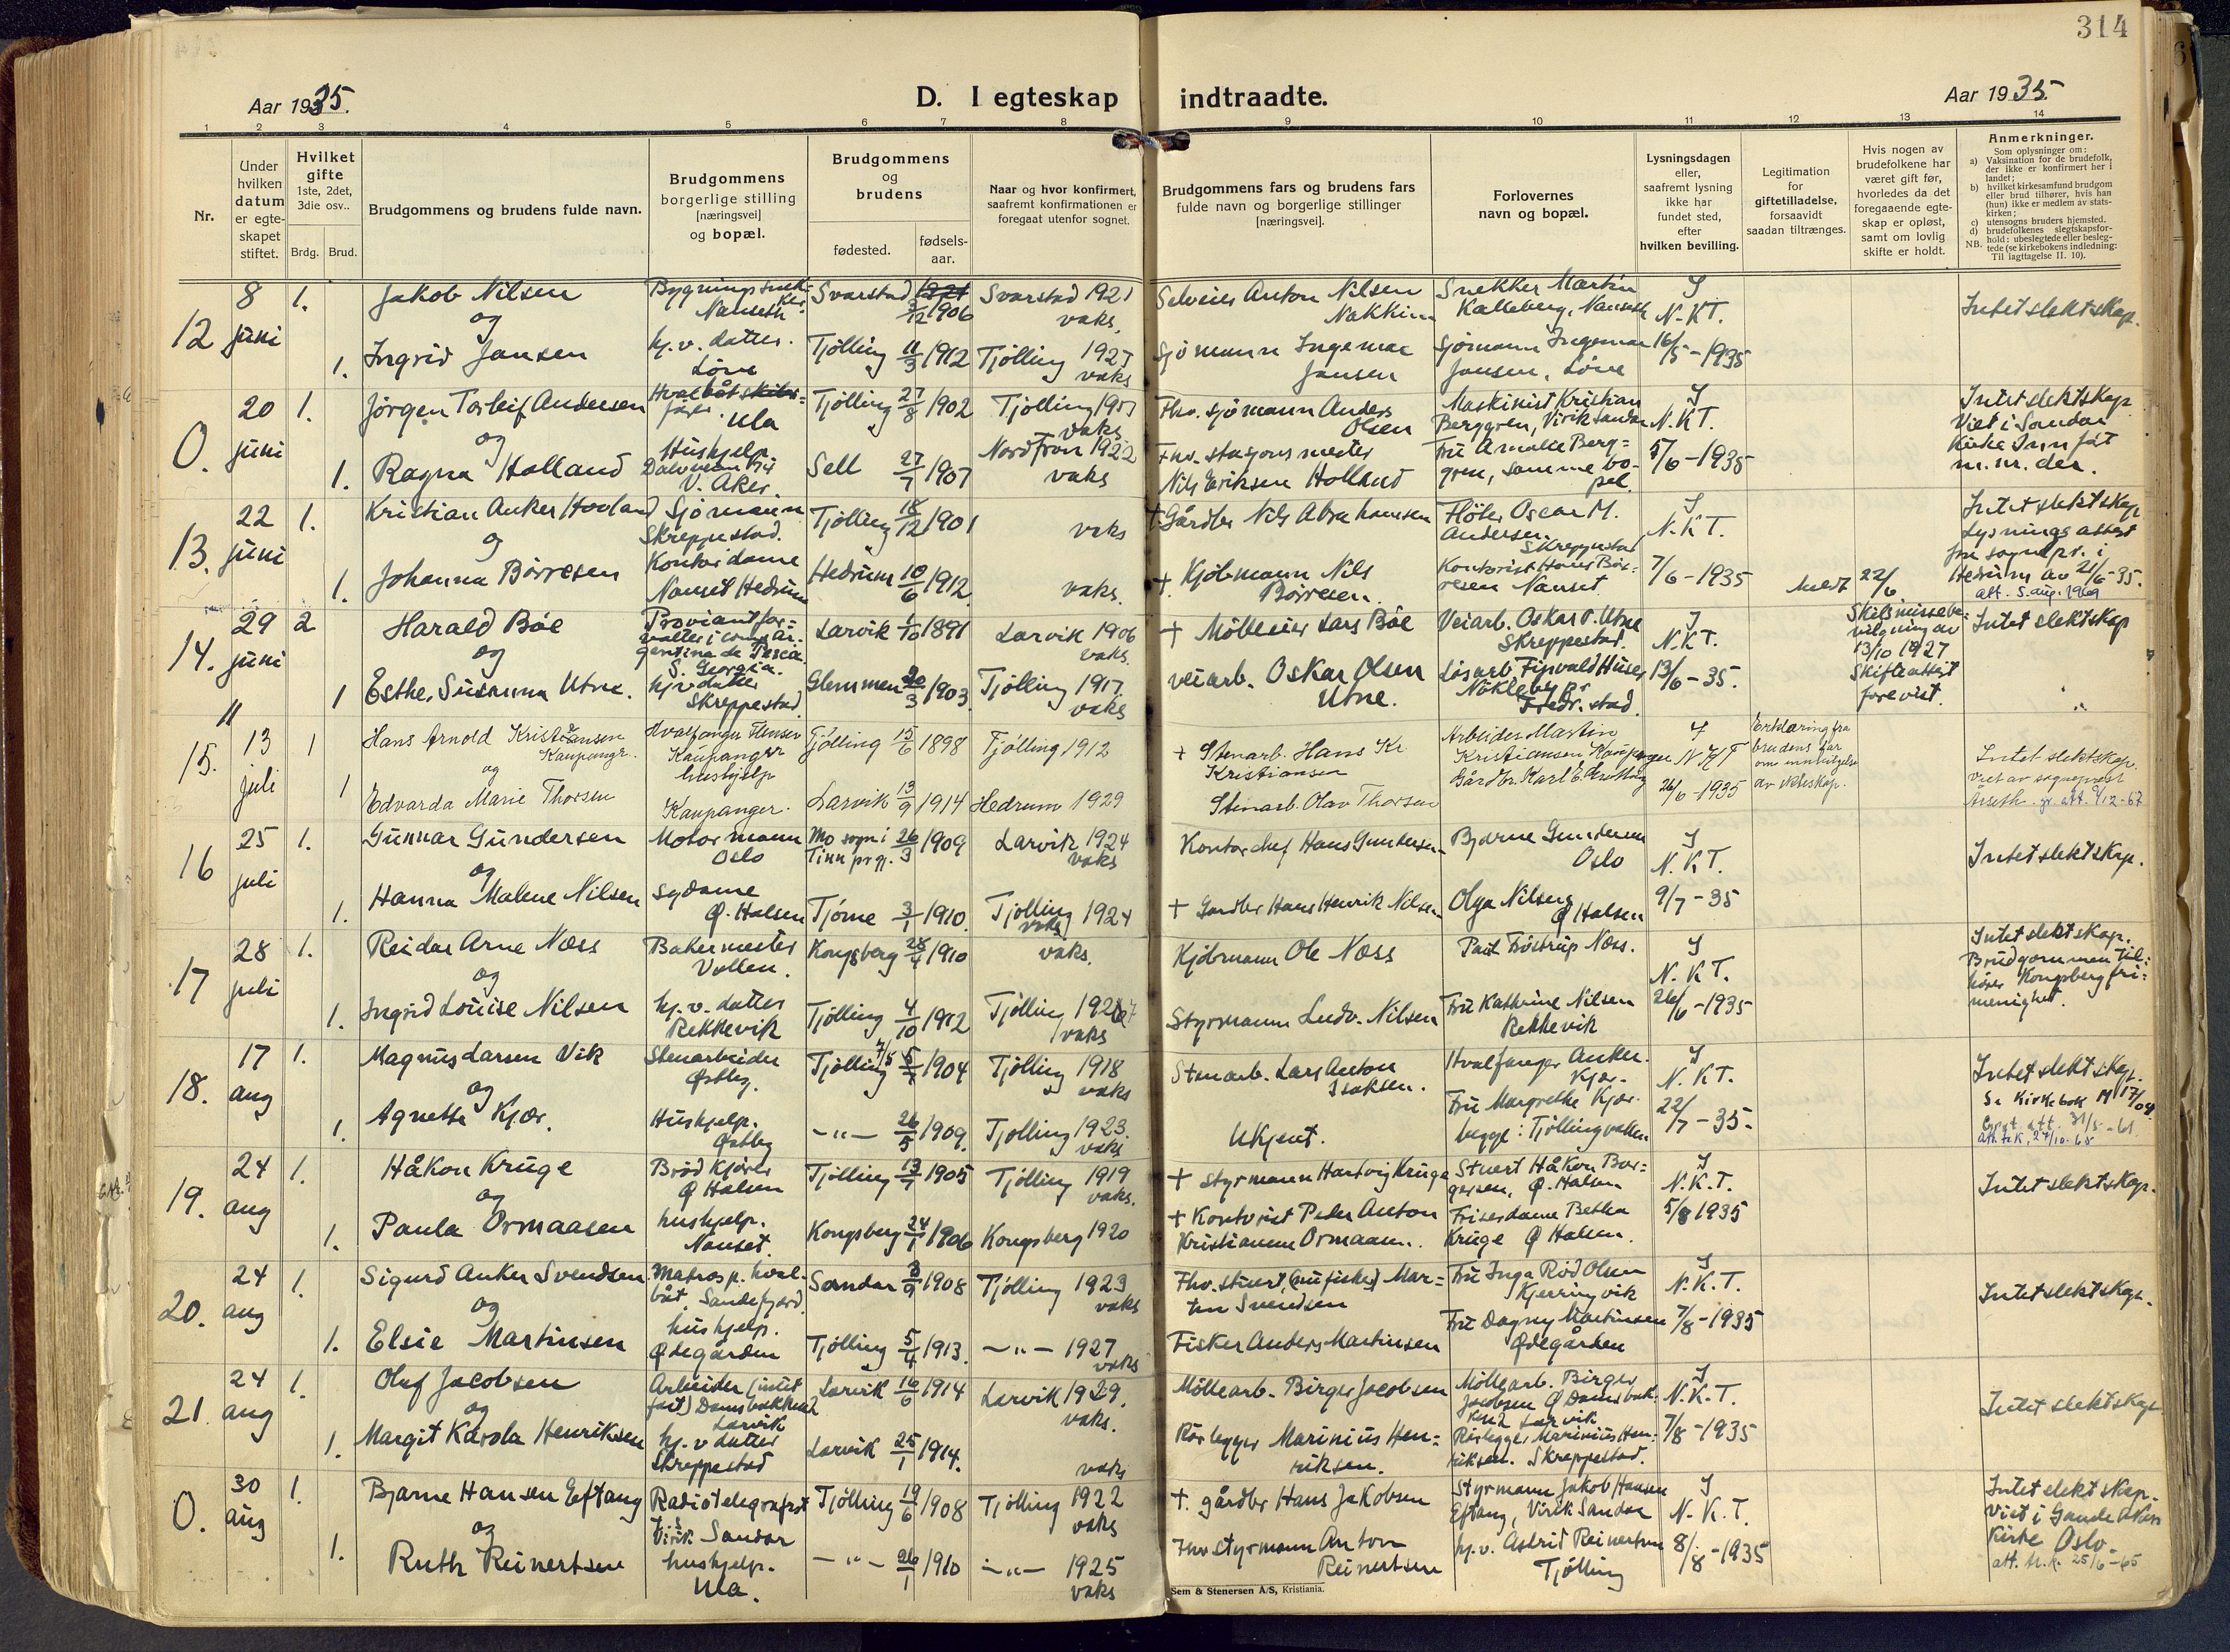 314
Aar 1935.
D. I egteskap indtraadte.
Aar 1935.
1 2 3 4 5 6 7 8 9 10 11 12 13 14
Nr.
Under hvilken datum er egteskapet stiftet.
Hvilket gifte 1ste, 2det, 3die osv..
Brdg. Brud.
Brudgommens og brudens fulde navn.
Brudgommens borgerlige stilling [næringsvei] og bopæl.
Brudgommens og brudens
fødested. fødsels-aar.
Naar og hvor konfirmert, saafremt konfirmationen er foregaat utenfor sognet.
Brudgommens fars og brudens fars fulde navn og borgerlige stillinger [næringsvei].
Forlovernes navn og bopæl.
Lysningsdagen eller, saafremt lysning ikke har fundet sted, efter hvilken bevilling.
Legitimation for giftetilladelse, forsaavidt saadan tiltrænges.
Hvis nogen av brudefolkene har været gift før, hvorledes da det foregaaende egteskap er opløst, samt om lovlig skifte er holdt.
Anmerkninger.
Som oplysninger om:
a) Vaksination for de brudefolk, der ikke er konfirmert her i landet;
b) hvilket kirkesamfund brudgom eller brud tilhører, hvis han (hun) ikke er medlem av statskirken;
c) utensogns bruders hjemsted.
d) brudefolkenes slegtskapsforhold: ubeslegtede eller beslegtede (se kirkebokens indledning:
NB. Til iagttagelse II. 10).
12 8 juni 1. Jakob Nilsen Nanseth Svarstad 3/12 1906 Svarstad 1921 vaks. Selveier Anton Nilsen Nakkim Snekker Martin Kalleberg, Nanseth J N.K.T. Intet slektskap.
og
1. Ingrid Jansen hj.v. datter. Löve Tjölling 11/3 1912 Tjölling 1927 vaks Sjömann Ingemar Jansen Sjömann Ingemar Jansen, Löve 16/5-1935
0. 20 juni 1. Jörgen Torleif Andersen Ula Tjölling 27/8 1902 Tjölling vaks Fhv. sjömann Anders Olsen Maskinist Kristian Berggren, Virik Sandar J N.K.T. Intet slektskap Viet i Sandar Kirke Innført m. nr. der.
og
1. Ragna Holland Hushjelp V. Aker. Sell 27/7 1907 Nord Fron 1922 vaks Fhv. stasjonsmester Nils Eriksen Holland Fru Amalie Berggren, samme bopel. 5/6-1935
13. 22 juni 1. Kristian Anker Hovland Sjömann Skreppestad. Tjölling 18/12 1901 vaks + Gårdbr Nils Abrahamsen Flöter Oscar M. Andersen Skreppestad J N.K.T. Intet slektskap Lysningsattest fra sognepr. i Hedrum av 21/6-35. att. 5. aug. 1969
og
1. Johanna Börresen Kontordame Nanset Hedrum Hedrum 10/6 1912 vaks. + Kjöbmann Nils Börresen. Kontorist Hans Börresen Nanset 7/6-1935 Meldt 22/6
14. 29 juni 2 Harald Böe Proviantforvalter i comp. Argentina de Pesca S. Georgia. Larvik 1/10 1891 Larvik 1906 vaks. + Mölleier Lars Böe Veiarb. Oskar O. Utne Skreppestad. J N.K.T. Skilsmissebevilgning av 13/10 1927 Skifteattest forevist. Intet slektskap
og
1 Esther Susanna Utne. hjv datter Skreppestad. Glemmen 20/3 1903 Tjölling 1917. vaks veiarb. Oskar Olsen Utne. Nökleby pr Fredr.stad. 13/6-35.
15. 13 juli 1 Hans Arnold Kristiansen Kaupangr. Hvalfanger Kaupanger Tjölling 15/6 1898 Tjölling 1912 + Stenarb. Hans Kr Kristiansen Arbeider Martin Kristiansen Kaupanger J N.K.T Erklæring fra brudens far om innvilgelse av ekteskap. Intet slektskap. Viet av sogneprest Årseth.
og
1 Edvarda Marie Thorsen hushjelp Kaupanger. Larvik 13/9 1914 Hedrum 1929 Stenarb. Olav Thorsen Gårdbr. Karl E. 26/6-1935
16 25 juli 1. Gunnar Gundersen Motormann Oslo Mo sogn i Tinn prgj. 26/3 1909 Larvik 1924 vaks Kontorchef Hans Gundersen Bjarne Gundersen Oslo J N.K.T. Intet slektskap.
og
1. Hanna Malene Nilsen sydame Ø. Halsen Tjöme 3/1 1910. Tjölling 1924 vaks + Gardbr Hans Henrik Nilsen Olga Nilsen Ø Halsen 9/7-35
17 28 juli 1. Reidar Arne Næss Bakermester Vollen. Kongsberg 28/4 1910 vaks. Kjöbmann Ole Næss Næss. J N.K.T. Intet slektskap. Brudgommen tilhører Kongsberg frimenighet.
og
1. Ingrid Louise Nilsen hj.v. datter Rekkevik Tjölling 4/10 1912 Tjölling vaks Styrmann Ludv. Nilsen Fru Kathrine Nilsen Rekkevik 26/6-1935
18. 17 aug 1. Magnus Larsen Vik Stenarbeider Østby. Tjölling 1904 Tjölling 1918 vaks Stenarb. Lars Anton Isaksen. Hvalfanger Anker Kjær. J N.K.T. Intet slektskap. Se Kirkebok
og
1. Agnethe Kjær. Hushjelp. Østby –"– 26/5 1909. Tjölling 1923. vaks Ukjent. Fru Margrethe Kjær. begge: Tjöllingvollen 22/7-35-
19. 24 aug 1. Håkon Kruge Brödkjörer Ø Halsen Tjölling 13/7 1905 Tjölling 1919 vaks. + Styrmann Hartvig Kruge Stuert Håkon Borgersen, Ø. Halsen J N.K.T. Intet slektskap.
og
1. Paula Ormaasen hushjelp. Nanset. Kongsberg 24/1 1906 Kongsberg 1920 + Kontorist Peder Anton Kristiansen Ormaasen. Friserdame Betha Kruge Ø Halsen. 5/8 1935
20. 24 aug 1. Sigurd Anker Svendsen Matros p. hvalbåt. Sandefjord. Sandar 3/9 1908 Tjölling 1923 vaks Fhv. stuert, (nu fisker) Martin Svendsen Fru Inga Röd Olsen Kjerringvik J N.K.T. Intet slektskap.
og
1. Elsie Martinsen hushjelp. Ødegården Tjölling 5/4 1913. –"– 1927 vaks Fisker Anders Martinsen Fru Dagny Martinsen Ødegården 7/8-1935
21. 24 aug 1. Oluf Jacobsen Arbeider Larvik Larvik 16/6 1914 Larvik 1929. vaks. Möllearb. Birger Jacobsen Möllearb. Birger Jacobsen Larvik J N.K.T. Intet slektskap
og
1. Margit Karola Henriksen hj.v datter Skreppestad Larvik 25/1 1914. vaks Rörlegger Marinius Henriksen. Rörlegger Marinius Henriksen. Skreppestad. 7/8-1935
0. 30 aug 1. Bjarne Hansen Eftang Radiotelegrafist Virik Sandar Tjölling 19/6 1908 Tjölling 1922 vaks +. gårdbr Hans Jakobsen Styrmann Jakob Hansen Eftang, Virik Sandar J N.K.T. Intet slektskap. Viet i Gamle Aker Kirke Oslo.
og
1. Ruth Reinertsen hushjelp. Ula. –"– 26/1 1910 –"– 1925 vaks Fhv styrmann Anton Reinertsen hj.v. Astrid Reinertsen Tjölling 8/8-1935
Sem & Stenersen A/S, Kristiania.